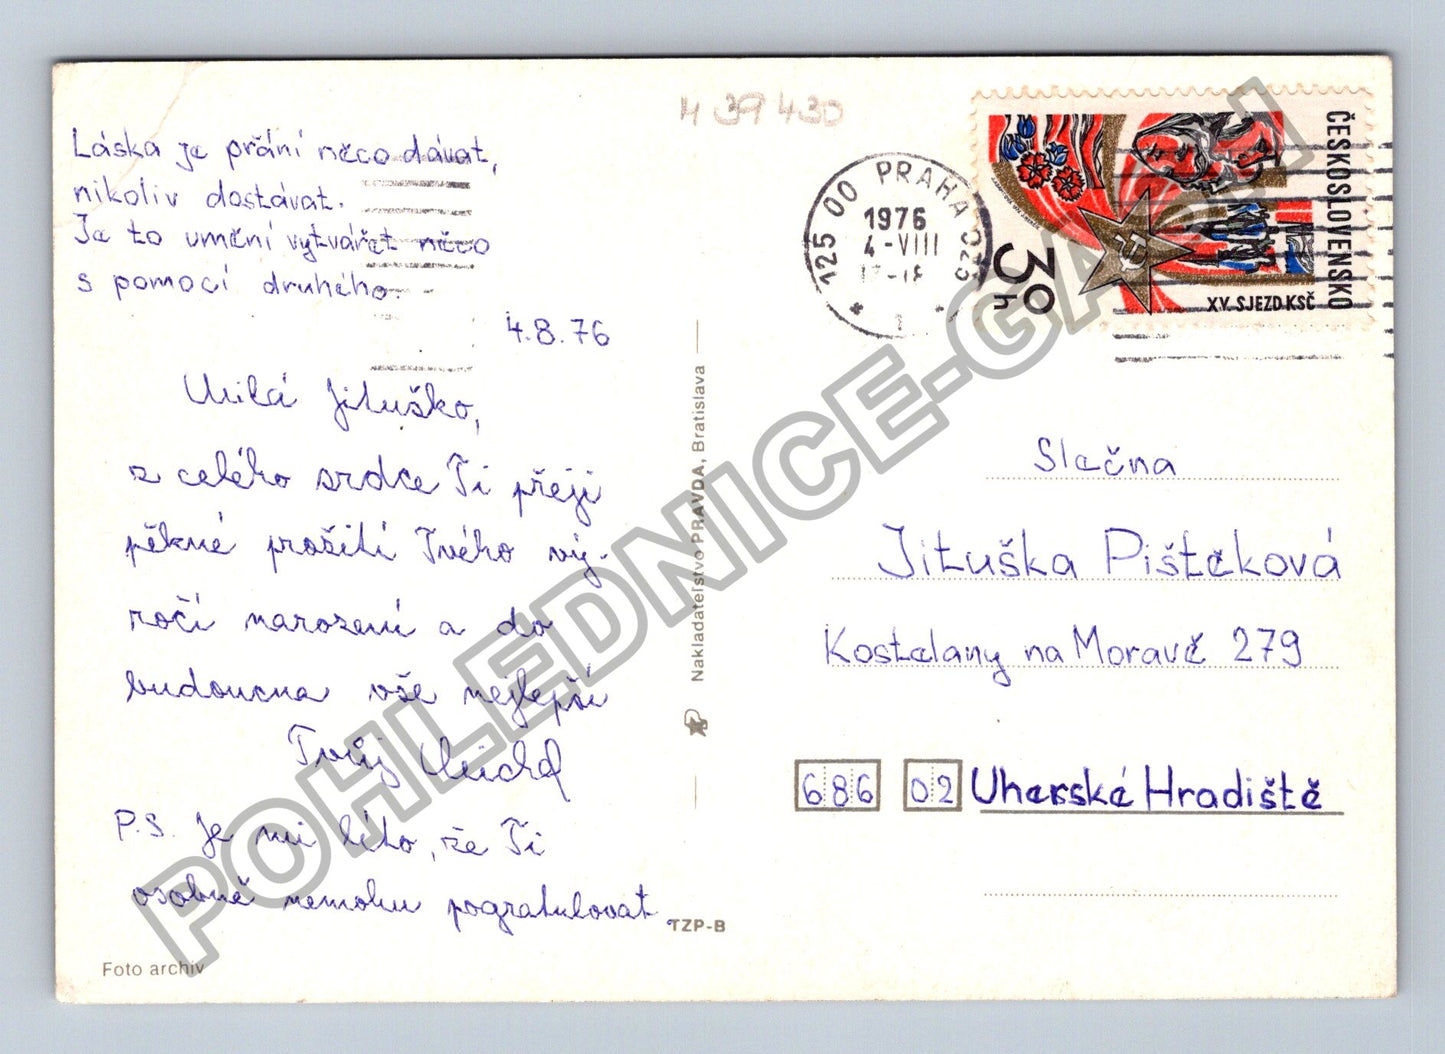 Láska je přání něco dávat,
nikoliv dostávat.
Je to umění vytvářet něco
s pomocí druhého.
4.8.76
Milá Jituško,
z celého srdce Ti přeji
pěkné prožití Tvého vý-
ročí narození a do
budoucna vše nejlepší
Tvůj Michal
P.S. Je mi líto, že Ti
osobně nemohu pogratulovat
Foto archiv
TZP-B
Nakladateľstvo PRAVDA, Bratislava
H 39 430
125 00 PRAHA 025
1976
4-VIII
17-18
1
ČESKOSLOVENSKO
XV. SJEZD KSČ
30 h
Slečna
Jituška Pištěková
Kostelany na Moravě 279
686 02 Uherské Hradiště
POHLEDNICE-GARCH